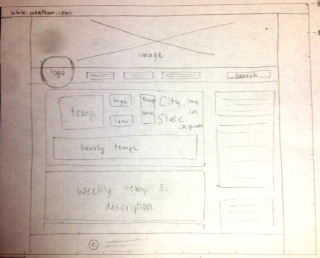 www.weather.com
image
logo
search
temp.
high
low
City,
State
hourly temps
weekly temp &
description.
©